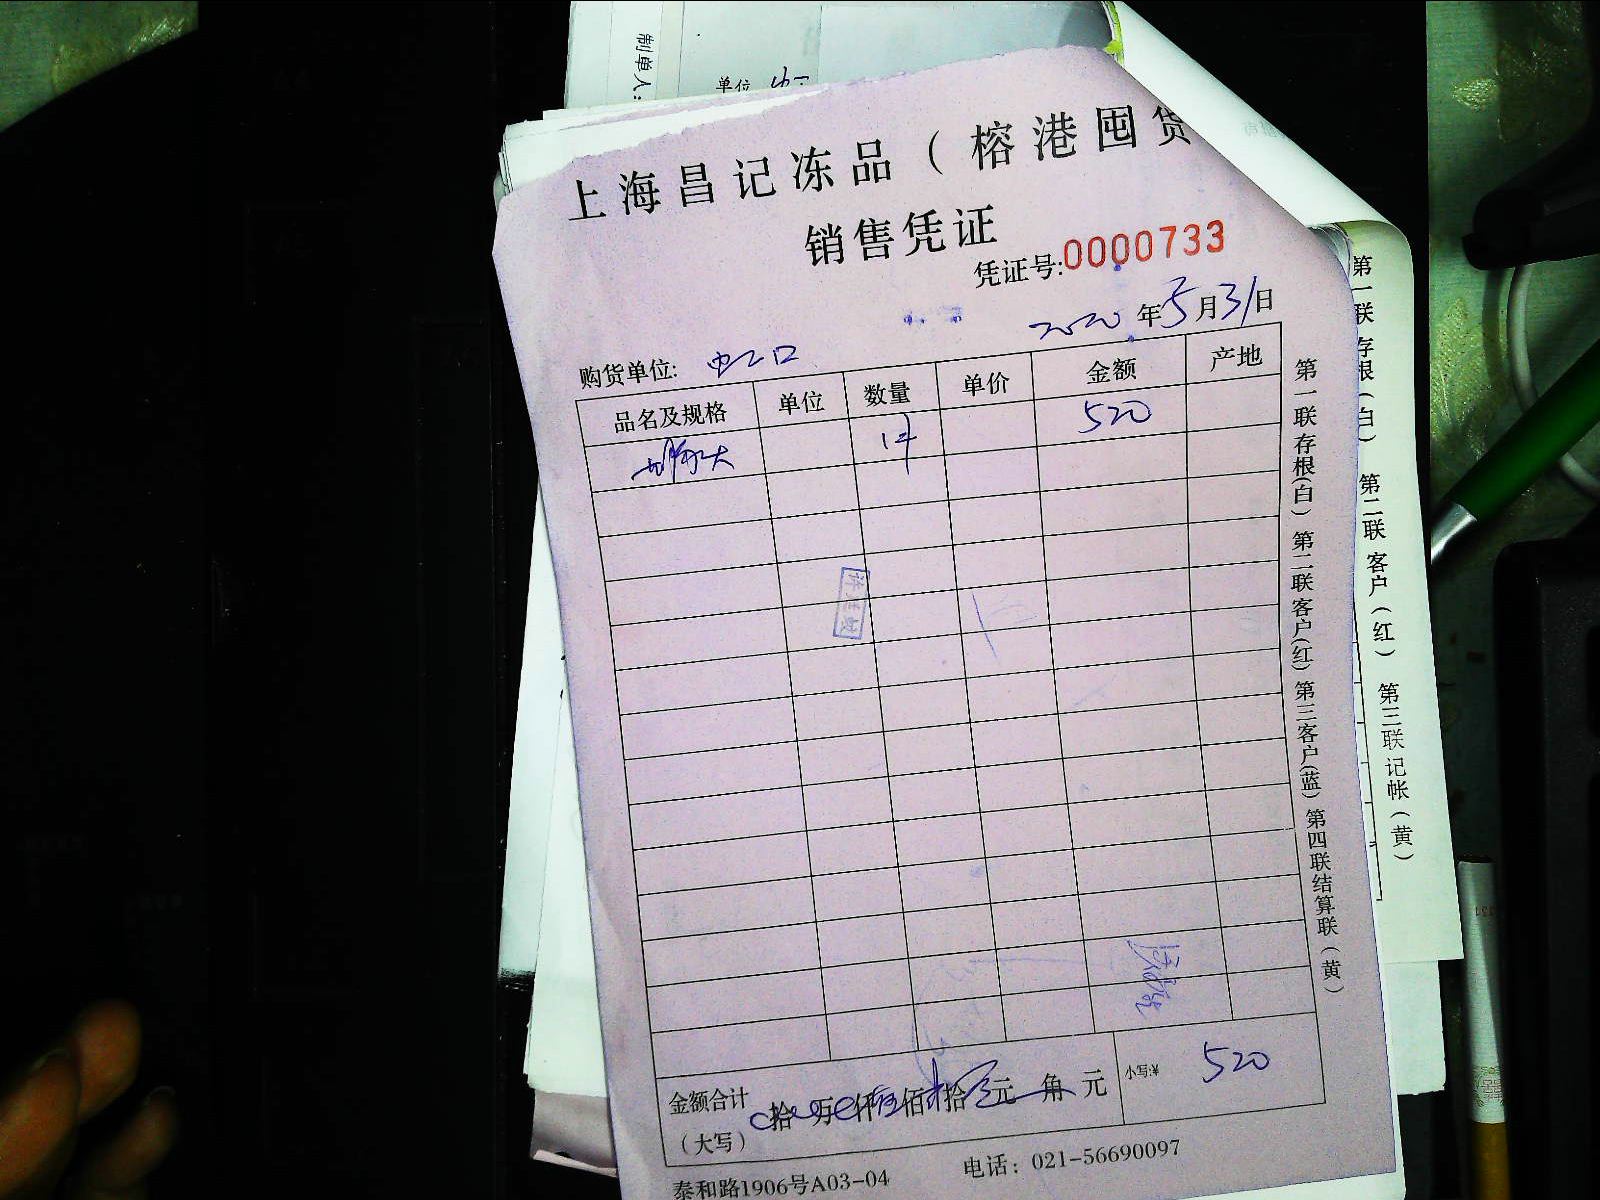 制单人：
单位
上海昌记冻品（榕港囤货
销售凭证
凭证号:0000733
2020 年 5 月 31 日
购货单位: 虹口
品名及规格 单位 数量 单价 金额 产地
1件 520
金额合计（大写） 拾 万 仟 伍 佰 贰 拾 元 角 元 小写:¥ 520
泰和路1906号A03-04 电话：021-56690097
第一联存根(白) 第二联客户(红) 第三客户(蓝) 第四联结算联(黄)
第一联存根(白) 第二联 客户(红) 第三联记帐(黄)